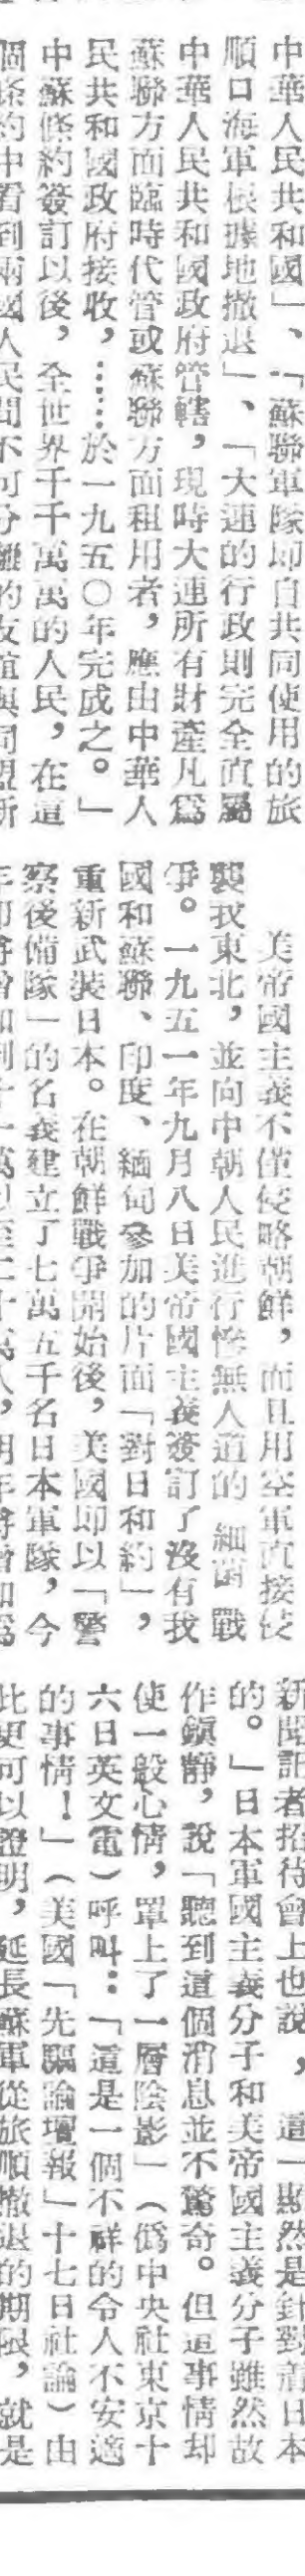 中華人民共和國」、「蘇聯軍隊即自共同使用的旅
順口海軍根據地撤退」、「大連的行政則完全直屬
中華人民共和國政府管轄，現時大連所有財產凡爲
蘇聯方面臨時代管或蘇聯方面租用者，應由中華人
民共和國政府接收，……於一九五〇年完成之。」
中蘇條約簽訂以後，全世界千千萬萬的人民，在這
個條約中看到兩國人民間不可分離的友誼與同盟所
美帝國主義不僅侵略朝鮮，而且用空軍直接侵
襲我東北，並向中朝人民進行慘無人道的細菌戰
爭。一九五一年九月八日美帝國主義簽訂了沒有我
國和蘇聯、印度、緬甸參加的片面「對日和約」，
重新武裝日本。在朝鮮戰爭開始後，美國即以「警
察後備隊」的名義建立了七萬五千名日本軍隊，今
年即將增加到十一萬以至二十萬人，明年將增加爲
新聞記者招待會上也說，這一顯然是針對着日本
的。」日本軍國主義分子和美帝國主義分子雖然故
作鎭靜，說「聽到這個消息並不驚奇。但這事情却
使一般心情，罩上了一層陰影」（僞中央社東京十
六日英文電）呼叫：「這是一個不祥的令人不安適
的事情！」（美國「先驅論壇報」十七日社論）由
此更可以證明，延長蘇軍從旅順撤退的期限，就是